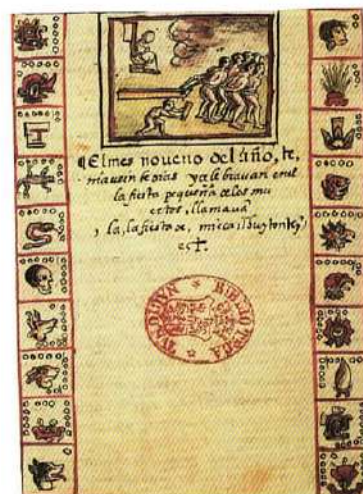 ¶ El mes noueno del año, te,
nia uein te dias y çelebrauan enel
la fiesta pequeña de los mu
ertos, llamaua
la, la fiesta de, micailhuytontly
BIBLIOTECA
NACIONAL